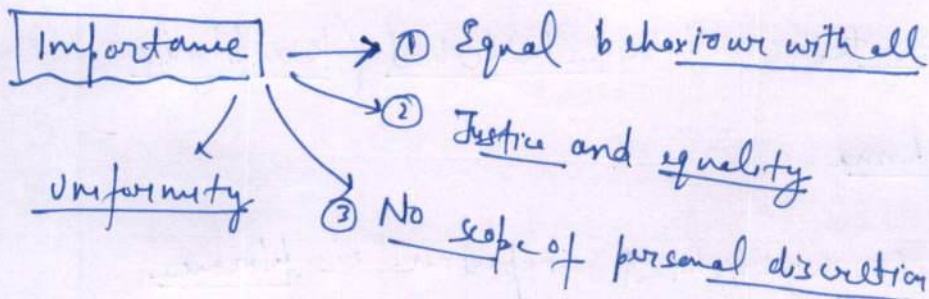 Importance → ① Equal behaviour with all
② Justice and equality
uniformity
③ No scope of personal discretion